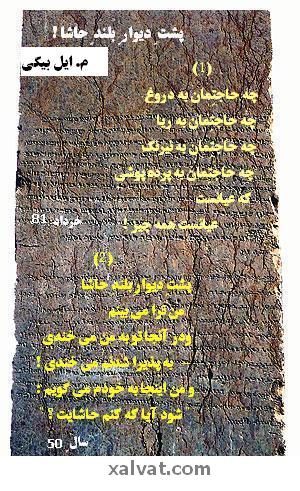 پشت دیوار بلند حاشا !
م. ایل بیکی
(1)
چه حاجتمان به دروغ
چه حاجتمان به ریا
چه حاجتمان به نیرنگ
چه حاجتمان به پرده پوشی
که عیانست
عیانست همه چیز !
خرداد 81
(2)
پشت دیوار بلند حاشا
من ترا می بینم
و در آنجا تو به من می خندی
به پذیرا شدنم می خندی !
و من اینجا به خودم می گویم :
شود آیا که کنم حاشایت ؟
سال 50
xalvat.com